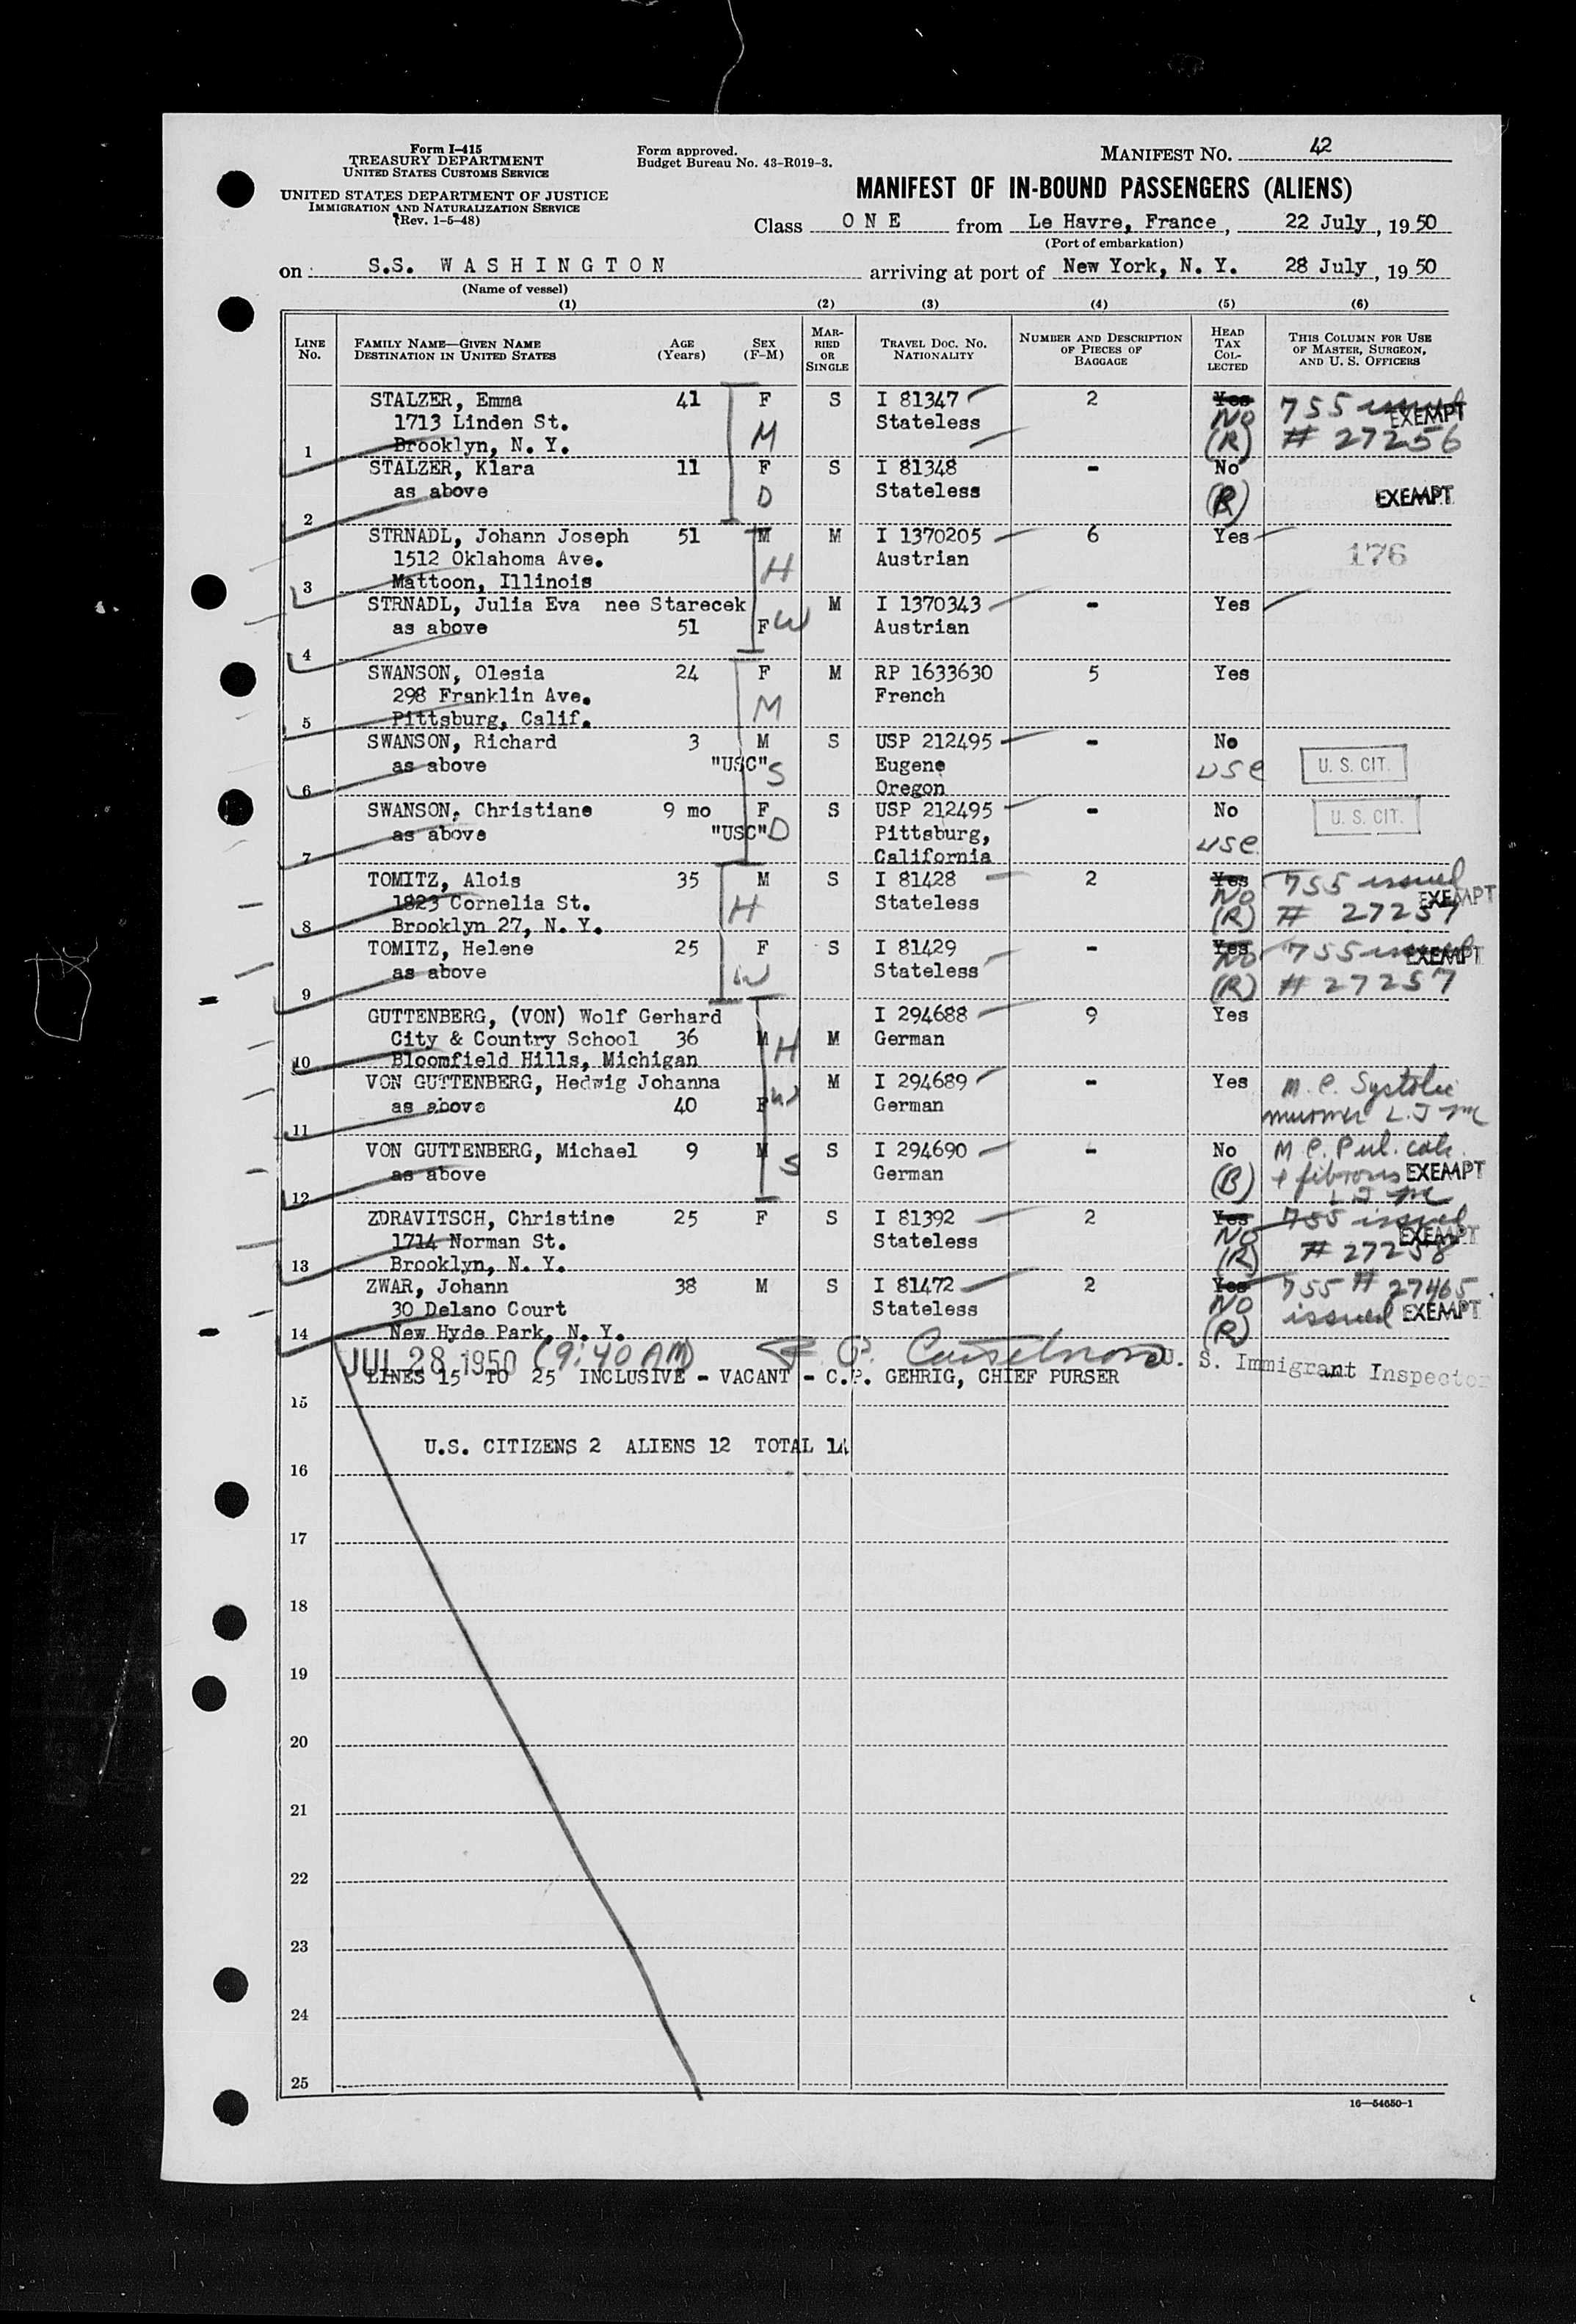 Form I-415
TREASURY DEPARTMENT
UNITED STATES CUSTOMS SERVICE
UNITED STATES DEPARTMENT OF JUSTICE
IMMIGRATION AND NATURALIZATION SERVICE
(Rev. 1-5-48)
Form approved.
Budget Bureau No. 43-R019-3.
MANIFEST NO. 42
MANIFEST OF IN-BOUND PASSENGERS (ALIENS)
Class O N E from Le Havre, France, 22 July, 1950
(Port of embarkation)
on S.S. W A S H I N G T O N arriving at port of New York, N. Y. 28 July, 1950
(Name of vessel)
(1) (2) (3) (4) (5) (6)
LINE No.
FAMILY NAME—GIVEN NAME
DESTINATION IN UNITED STATES
AGE (Years)
SEX (F-M)
MAR-RIED OR SINGLE
TRAVEL DOC. NO. NATIONALITY
NUMBER AND DESCRIPTION OF PIECES OF BAGGAGE
HEAD TAX COL-LECTED
THIS COLUMN FOR USE OF MASTER, SURGEON, AND U. S. OFFICERS
STALZER, Emma 41 F S I 81347 2 Yes 755 issued EXEMPT
1713 Linden St. M Stateless NO # 27256
1 Brooklyn, N. Y. (R)
STALZER, Klara 11 F S I 81348 - No
as above D Stateless (R) EXEMPT
2
STRNADL, Johann Joseph 51 M M I 1370205 6 Yes
1512 Oklahoma Ave. H Austrian 176
3 Mattoon, Illinois
STRNADL, Julia Eva nee Starecek M I 1370343 - Yes
as above 51 F W Austrian
4
SWANSON, Olesia 24 F M RP 1633630 5 Yes
298 Franklin Ave. M French
5 Pittsburg, Calif.
SWANSON, Richard 3 M S USP 212495 - No
as above "USC" S Eugene USC U. S. CIT.
6 Oregon
SWANSON, Christiane 9 mo F S USP 212495 - No U. S. CIT.
as above "USC" D Pittsburg, USC
7 California
TOMITZ, Alois 35 M S I 81428 2 Yes 755 issued
1823 Cornelia St. H Stateless NO EXEMPT
8 Brooklyn 27, N. Y. (R) # 27257
TOMITZ, Helene 25 F S I 81429 - Yes 755 issued EXEMPT
as above W Stateless NO
9 (R) # 27257
GUTTENBERG, (VON) Wolf Gerhard I 294688 9 Yes
City & Country School 36 M H M German
10 Bloomfield Hills, Michigan
VON GUTTENBERG, Hedwig Johanna M I 294689 - Yes M.C. Systolic
as above 40 F W German murmur L.J.M
11
VON GUTTENBERG, Michael 9 M S I 294690 - No M C. Pul. calc.
as above S German (B) & fibrosis EXEMPT
12 L J M
ZDRAVITSCH, Christine 25 F S I 81392 2 Yes 755 issued
1714 Norman St. Stateless NO EXEMPT
13 Brooklyn, N. Y. (R) # 27258
ZWAR, Johann 38 M S I 81472 2 Yes 755 # 27465
30 Delano Court Stateless NO issued EXEMPT
14 New Hyde Park, N. Y. (R)
JUL 28 1950 (9:40 AM) U. S. Immigrant Inspector
LINES 15 TO 25 INCLUSIVE - VACANT - C.P. GEHRIG, CHIEF PURSER
15
U.S. CITIZENS 2 ALIENS 12 TOTAL 14
16
17
18
19
20
21
22
23
24
25
16—54650-1